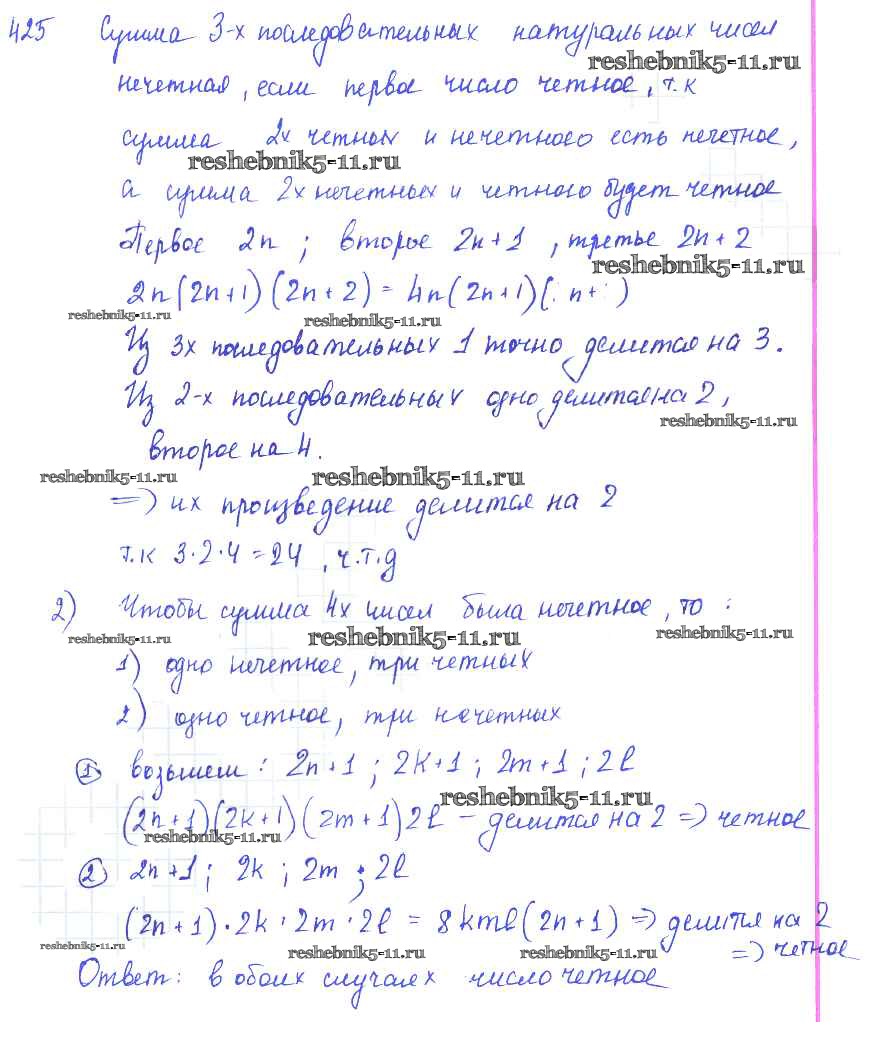 425 Сумма 3-х последовательных натуральных чисел
reshebnik5-11.ru
нечетная, если первое число четное, т.к
сумма 2х четных и нечетного есть нечетное,
reshebnik5-11.ru
а сумма 2х нечетных и четного будет четное
Первое 2n ; второе 2n+1 , третье 2n+2
reshebnik5-11.ru
2n(2n+1)(2n+2) = 4n(2n+1)( n+ )
reshebnik5-11.ru reshebnik5-11.ru
Из 3х последовательных 1 точно делится на 3.
Из 2-х последовательных одно делится на 2,
reshebnik5-11.ru
второе на 4.
reshebnik5-11.ru reshebnik5-11.ru
=> их произведение делится на 2
т.к 3·2·4=24 , ч.т.д
2) Чтобы сумма 4х чисел была нечетное, то :
reshebnik5-11.ru reshebnik5-11.ru reshebnik5-11.ru
1) одно нечетное, три четных
2) одно четное, три нечетных
① возьмем : 2n+1 ; 2k+1 ; 2m+1 ; 2l
reshebnik5-11.ru
(2n+1)(2k+1)(2m+1)2l – делится на 2 => четное
reshebnik5-11.ru
② 2n+1 ; 2k ; 2m ; 2l
(2n+1)·2k·2m·2l = 8kml(2n+1) => делится на 2
=> четное
reshebnik5-11.ru reshebnik5-11.ru reshebnik5-11.ru
Ответ: в обоих случаях число четное